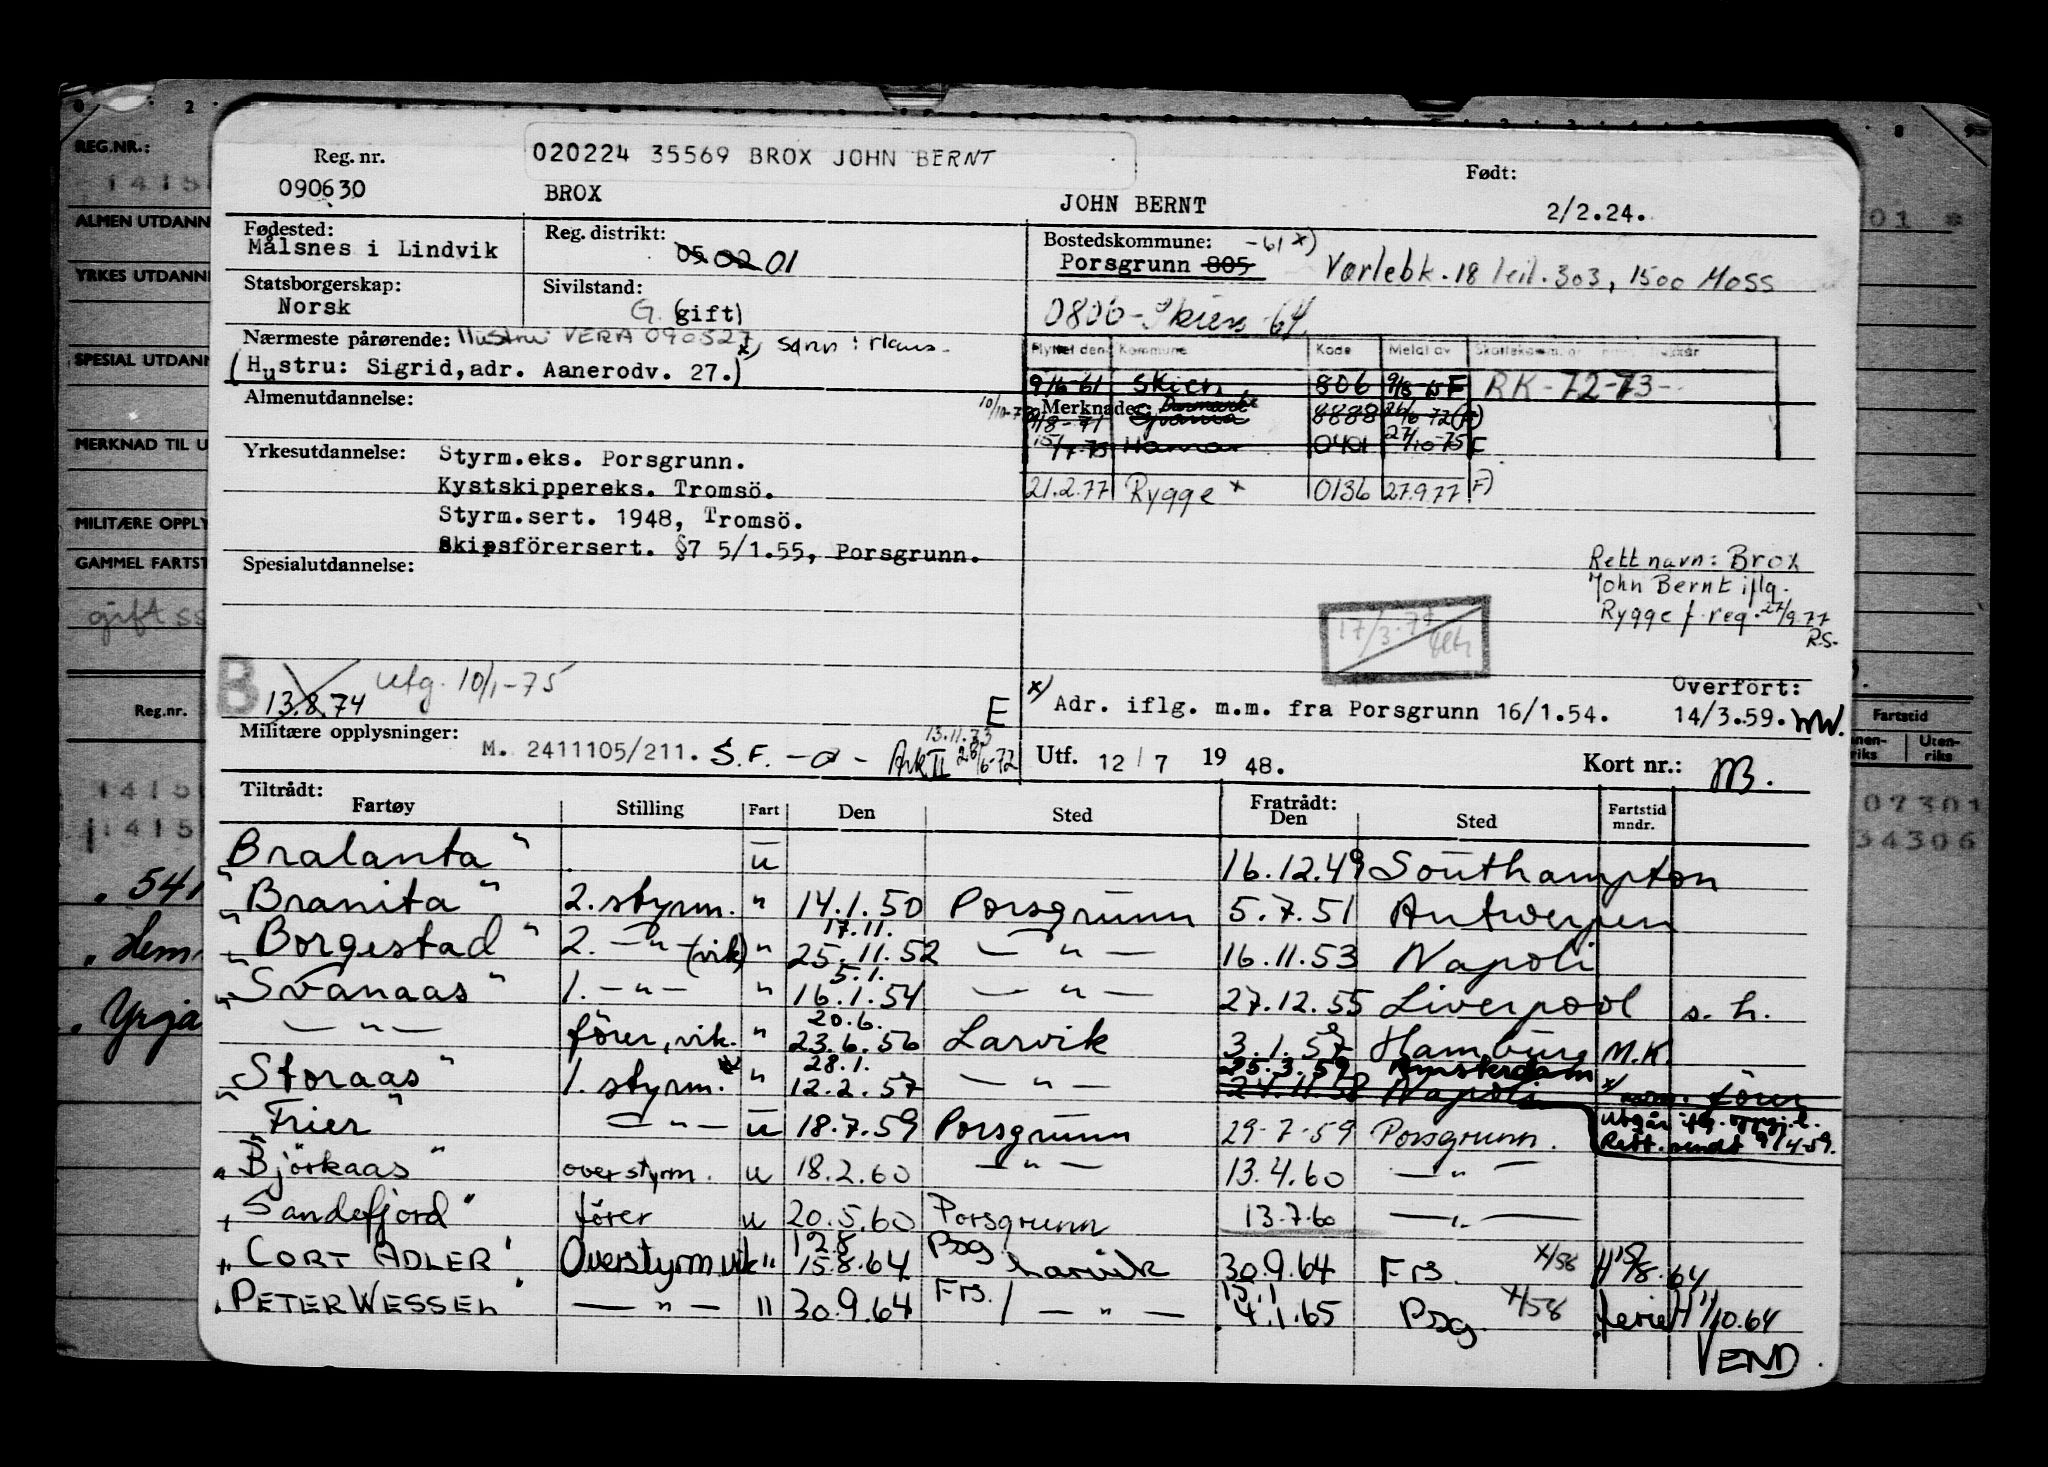 020224 35569 BROX JOHN BERNT
Reg. nr.
090630
BROX
JOHN BERNT
Født:
2/2.24.
Fødested:
Målsnes i Lindvik
Reg. distrikt:
05 02 01
Bostedskommune: -61 x)
Porsgrunn 805
Varlebk. 18 leil. 303, 1500 Moss
Statsborgerskap:
Norsk
Sivilstand:
G. (gift)
0806 - Skien - 64
Nærmeste pårørende: Hustru VERA 090527
x) sønn:
(Hustru: Sigrid, adr. Aanerodv. 27.)
Flyttet den Kommune Kode Meldt av
9/16-61 Skien 806 F RK-72-73-
Almenutdannelse:
Merknader: Danmark
8888
Yrkesutdannelse:
Styrm.eks. Porsgrunn.
Kystskippereks. Tromsö.
Styrm.sert. 1948, Tromsö.
Skipsförersert. §7 5/1.55, Porsgrunn.
Hamar 0401 27/10-75 F
21.2.77 Rygge x 0136 27.9.77 F)
Spesialutdannelse:
Rett navn: Brox
John Bernt iflg.
Rygge f.reg. 27/9.77
R.S.
17/3.77
B
13.8.74
utg. 10/1-75
E
x) Adr. iflg. m.m. fra Porsgrunn 16/1.54.
Overfört:
14/3.59. WW.
Militære opplysninger:
M. 2411105/211. S.F. - a - Ark II 28/6-72
13.11.73
Utf. 12/7 1948.
Kort nr.:
Tiltrådt:
Fartøy Stilling Fart Den Sted
Fratrådt:
Den Sted Fartstid mndr.
Bralanta" u 16.12.49 Southampton
"Branita" 2. styrm. " 14.1.50 Porsgrunn 5.7.51 Antwerpen
17.11.
"Borgestad" 2. -"- (vik) " 25.11.52 -"- 16.11.53 Napoli
5.1.
"Svanaas" 1. -"- " 16.1.54 -"- 27.12.55 Liverpool s.h.
20.6.
-"- förer, vik. " 23.6.56 Larvik 3.1.57 Hamburg M.K.
28.1.
25.3.59 Amsterdam
"Storaas" 1. styrm. x " 12.2.57 -"- 24.11.58 Napoli x) förer
"Frier" -"- u 18.7.59 Porsgrunn 29-7-59 Porsgrunn.
Utgår
Rett. sendt 9/4-59.
"Björkaas" overstyrm. u 18.2.60 -"- 13.4.60 -"-
"Sandefjord" förer u 20.5.60 Porsgrunn 13.7.60 -"-
12.8 Psg
"CORT ADLER" Overstyrm vik " 15.8.64 Larvik 30.9.64 Frs. X/58
"PETER WESSEL" -"- " 30.9.64 Frs. / -"- 4.1.65 Psg X/58 ferie H 1/10.64
15.1
VEND
REG.NR.:
1415
ALMEN UTDANN
YRKES UTDANN
SPESIAL UTDANN
MERKNAD TIL U
MILITÆRE OPPLY
GAMMEL FARTST
gift
Reg.nr.
1415
1415
541
Hem
Yrja
01 *
Fartstid
nen-riks
Uten-riks
07301
34306